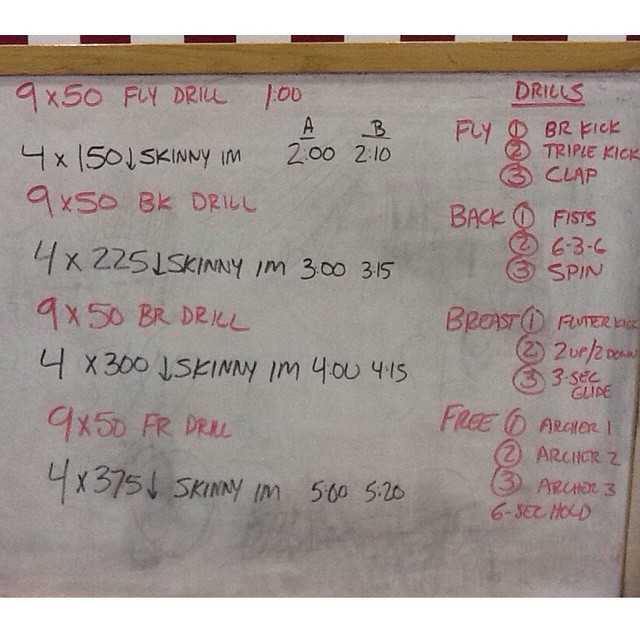 9 x 50 FLY DRILL 1:00
A B
4 x 150 ↓ SKINNY IM 2:00 2:10
9 x 50 BK DRILL
4 x 225 ↓ SKINNY IM 3:00 3:15
9 x 50 BR DRILL
4 x 300 ↓ SKINNY IM 4:00 4:15
9 x 50 FR DRILL
4 x 375 ↓ SKINNY IM 5:00 5:20
DRILLS
FLY ① BR KICK
② TRIPLE KICK
③ CLAP
BACK ① FISTS
② 6-3-6
③ SPIN
BREAST ① FLUTTER KICK
② 2 UP/2 DOWN
③ 3-SEC
GLIDE
FREE ① ARCHER 1
② ARCHER 2
③ ARCHER 3
6-SEC HOLD